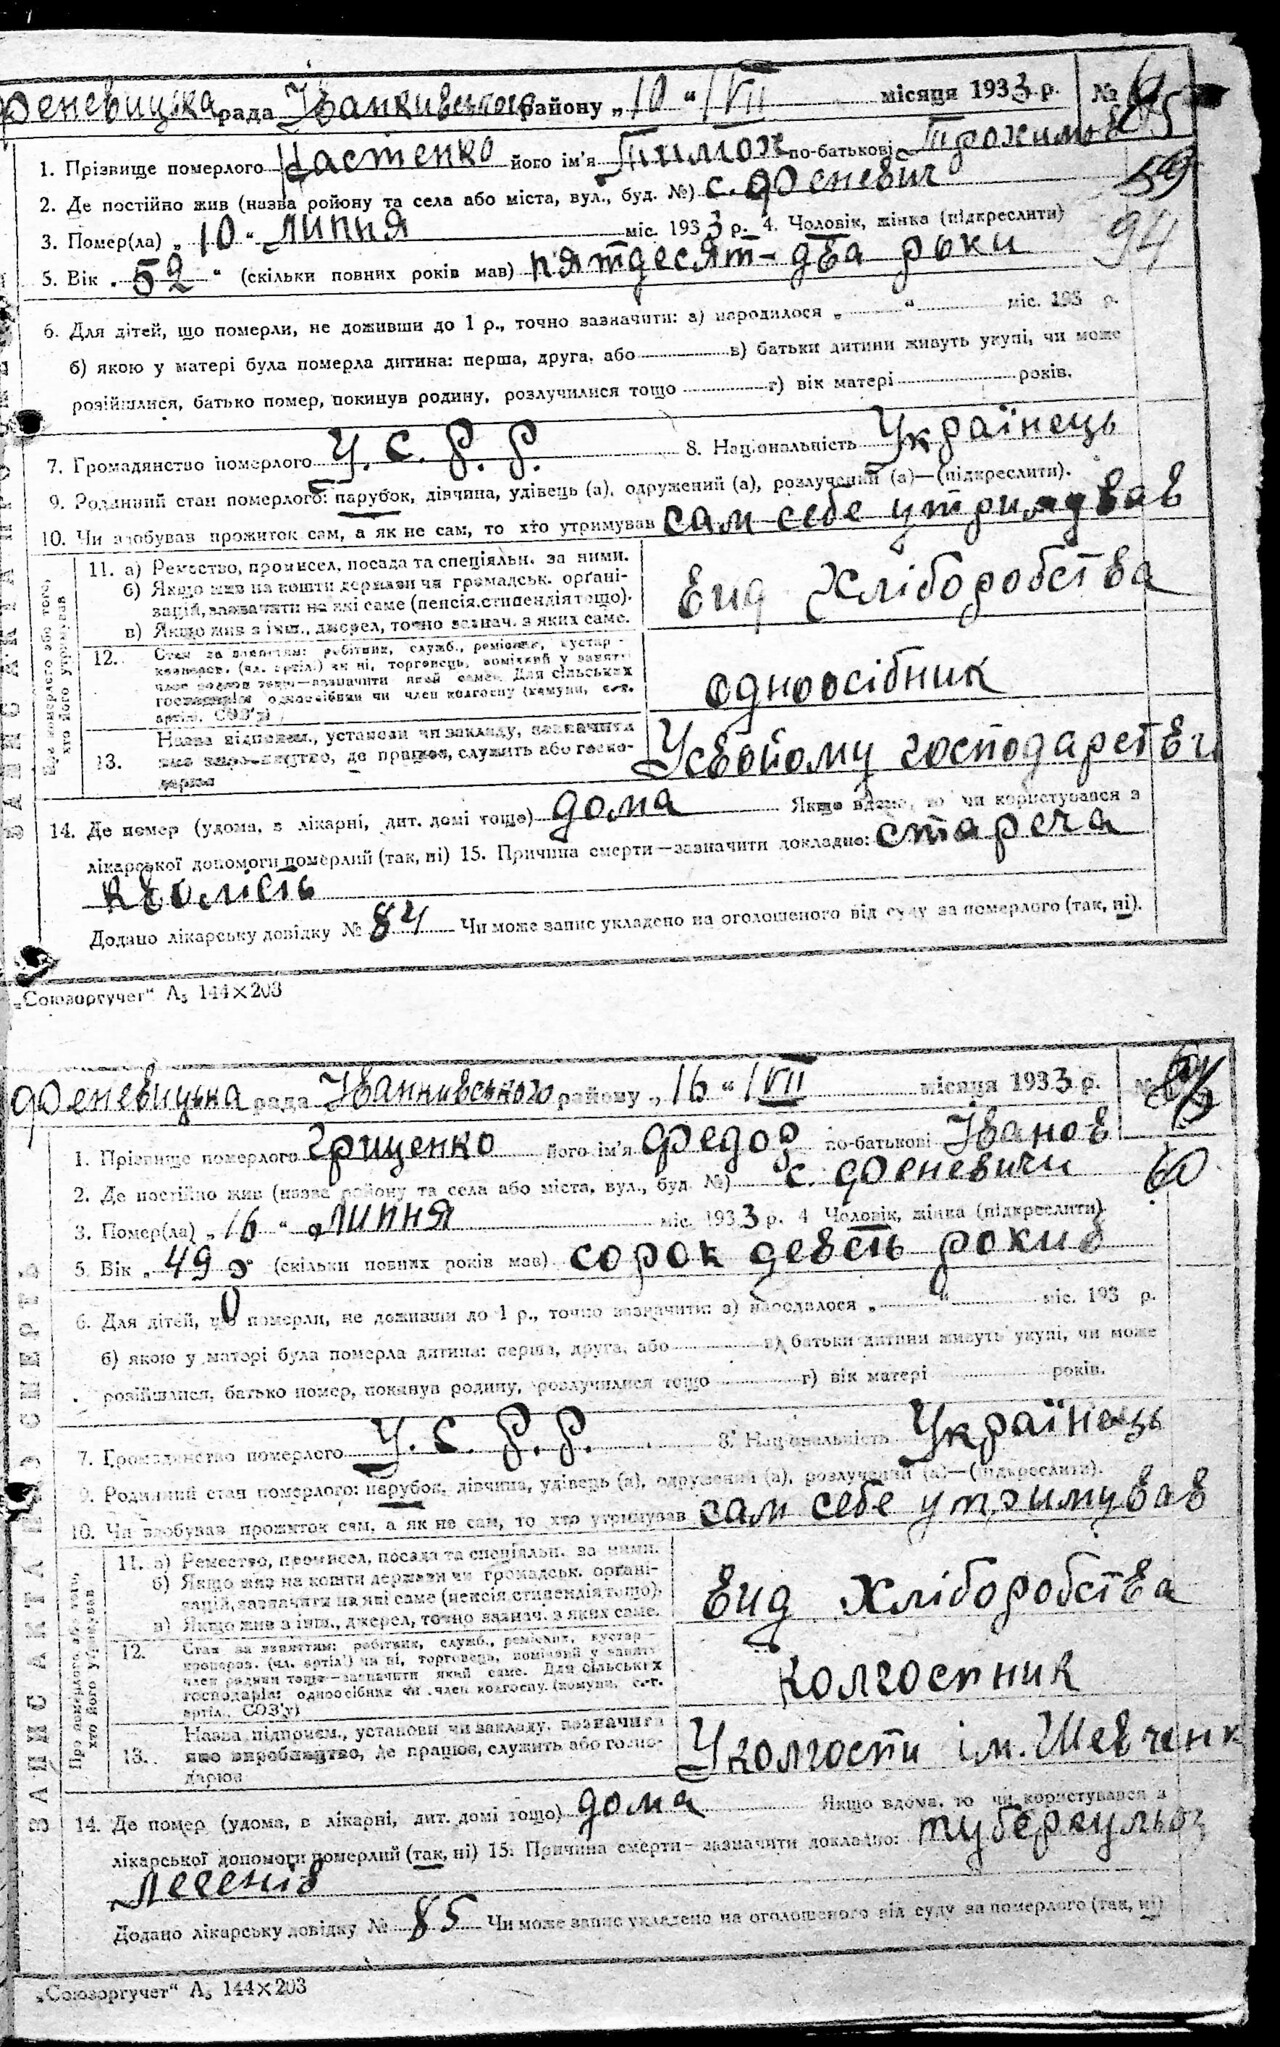 Феневицька рада Іванкивського району „10“ VII місяця 1933 р. №
1. Прізвище померлого Костенко його ім'я Тимох по-батькові Трохимов
59
2. Де постійно жив (назва ройону та села або міста, вул., буд. №) с. Феневич
94
3. Помер(ла) „10“ липня міс. 1933 р. 4. Чоловік, жінка (підкреслити)
5. Вік „52“ (скільки повних років мав) пятдесят-два роки
6. Для дітей, що померли, не доживши до 1 р., точно зазначити: а) народилося „ “ міс. 193 р.
б) якою у матері була померла дитина: перша, друга, або в) батьки дитини живуть укупі, чи може
розійшлися, батько помер, покинув родину, розлучилися тощо г) вік матері років.
7. Громадянство померлого У. С. Р. Р. 8. Національність Українець
9. Родинний стан померлого: парубок, дівчина, удівець (а), одружений (а), розлучений (а)—(підкреслити).
10. Чи здобував прожиток сам, а як не сам, то хто утримував сам себе утримував
ЗАПИС АКТА ПРО
Про померлого або того, хто його утримував
11. а) Ремество, промисел, посада та спеціяльн. за ними.
б) Якщо жив на кошти держави чи громадськ. орґані-
зацій, зазначити на які саме (пенсія, стипендія тощо).
в) Якщо жив з інш. джерел, точно зазнач. з яких саме.
Вид Хліборобства
12. Стан за заняттям: робітник, служб., ремісник, кустар -
кооперов. (чл. артіл.) чи ні, торговець, помічний у занятт.
член родини тощо—зазначити який саме. Для сільських
господарів: одноосібник чи член колгоспу (комуни, с.-г.
артіл., СОЗ'у)
одноосібник
13. Назва підприєм., установи чи закладу, зазначити
яке виробництво, де працює, служить або госпо-
дарює
У свойому господарстві
14. Де помер (удома, в лікарні, дит. домі тощо) дома Якщо вдома, то чи користувався з
лікарської допомоги померлий (так, ні) 15. Причина смерти—зазначити докладно: стареча
кволість
Додано лікарську довідку № 84 Чи може запис укладено на оголошеного від суду за померлого (так, ні).
„Союзоргучет“ А₅ 144×203
Феневицька рада Іванкивського району „16“ VII місяця 1933 р. №
1. Прізвище померлого Гриценко його ім'я Федор по-батькові Іванов
60
2. Де постійно жив (назва району та села або міста, вул., буд. №) с. Феневичи
3. Помер(ла) „16“ липня міс. 1933 р. 4 Чоловік, жінка (підкреслити).
5. Вік „49“ (скільки повних років мав) сорок девять рокив
6. Для дітей, що померли, не доживши до 1 р., точно зазначити: а) народилося „ “ міс. 193 р.
б) якою у матері була померла дитина: перша, друга, або в) батьки дитини живуть укупі, чи може
розійшлися, батько помер, покинув родину, розлучилися тощо г) вік матері років.
7. Громадянство померлого У. С. Р. Р. 8. Національність Українець
9. Родинний стан померлого: парубок, дівчина, удівець (а), одружений (а), розлучений (а)—(підкреслити).
10. Чи здобував прожиток сам, а як не сам, то хто утримував сам себе утримував
ЗАПИС АКТА ПРО СМЕРТЬ
Про померлого або того, хто його утримував
11. а) Ремество, промисел, посада та спеціяльн. за ними.
б) Якщо жив на кошти держави чи громадськ. орґані-
зацій, зазначити на які саме (пенсія, стипендія тощо).
в) Якщо жив з інш. джерел, точно зазнач. з яких саме.
Вид Хліборобства
12. Стан за заняттям: робітник, служб., ремісник, кустар -
кооперов. (чл. артіл.) чи ні, торговець, помічний у занятт.
член родини тощо—зазначити який саме. Для сільських
господарів: одноосібник чи член колгоспу. (комуни, с.-г.
артіл., СОЗ'у)
колгоспник
13. Назва підприєм., установи чи закладу, зазначити
яке виробництво, де працює, служить або госпо-
дарює
У колгоспи ім. Шевченк
14. Де помер (удома, в лікарні, дит. домі тощо) дома Якщо вдома, то чи користувався з
лікарської допомоги померлий (так, ні) 15. Причина смерти—зазначити докладно: туберкульоз
легенів
Додано лікарську довідку № 85 Чи може запис укладено на оголошеного від суду за померлого (так, ні)
„Союзоргучет“ А₅ 144×203